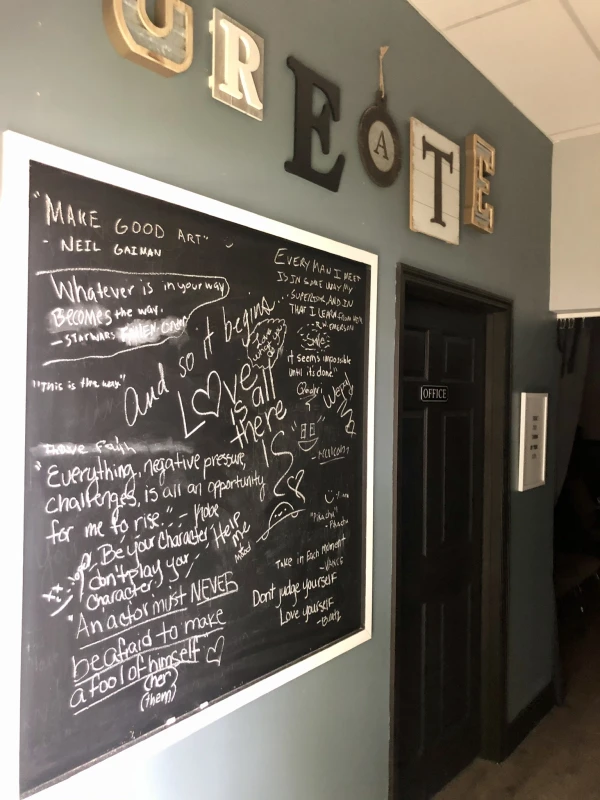 CREATE
"MAKE GOOD ART"
- NEIL GAIMAN
Whatever is in your way
Becomes the way.
- STARWARS
"This is the way"
And so it begins...
LOVE
is all
there
IS
Have faith
"Everything, negative pressure,
challenges, is all an opportunity
for me to rise." - Kobe
Be your character
don't play your
character
Help
me
"An actor must NEVER
be afraid to make
a fool of himself"
(her)
(them)
EVERY MAN I MEET
IS IN SOME WAY MY
SUPERIOR, AND IN
THAT I LEARN FROM HIM
- R.W. EMERSON
it seems impossible
until it's done"
- Malcolm
"Pikachu"
- Pikachu
Take in Each Moment
- VANCE
Don't judge yourself
Love yourself
OFFICE